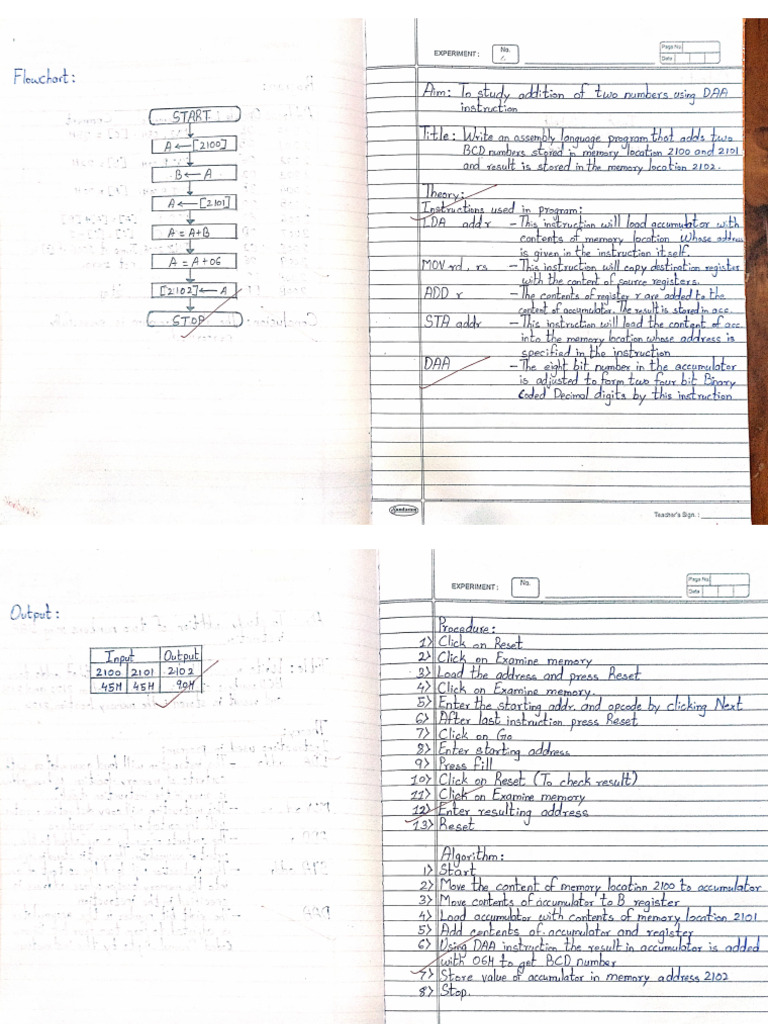 Flowchart:
START
A ← [2100]
B ← A
A ← [2101]
A = A+B
A = A + 06
[2102] ← A
STOP
EXPERIMENT :
No.
1.
Page No.
Date
Aim: To study addition of two numbers using DAA
instruction
Title: Write an assembly language program that adds two
BCD numbers stored in memory location 2100 and 2101
and result is stored in the memory location 2102.
Theory:
Instructions used in program:
LDA addr - This instruction will load accumulator with
contents of memory location whose address
is given in the instruction itself.
MOV rd, rs - This instruction will copy destination register
with the content of source registers.
ADD r - The contents of register r are added to the
content of accumulator. The result is stored in acc.
STA addr - This instruction will load the content of acc.
into the memory location whose address is
specified in the instruction
DAA - The eight bit number in the accumulator
is adjusted to form two four bit Binary
Coded Decimal digits by this instruction
Sundaram
Teacher's Sign. :
Output:
Input Output
2100 2101 2102
45H 45H 90H
EXPERIMENT :
No.
Page No.
Date
Procedure:
1> Click on Reset
2> Click on Examine memory
3> Load the address and press Reset
4> Click on Examine memory.
5> Enter the starting addr. and opcode by clicking Next
6> After last instruction press Reset
7> Click on Go
8> Enter starting address
9> Press fill
10> Click on Reset (To check result)
11> Click on Examine memory
12> Enter resulting address
13> Reset
Algorithm:
1> Start
2> Move the content of memory location 2100 to accumulator
3> Move contents of accumulator to B register
4> Load accumulator with contents of memory location 2101
5> Add contents of accumulator and register
6> Using DAA instruction the result in accumulator is added
with 06H to get BCD number
7> Store value of accumulator in memory address 2102
8> Stop.